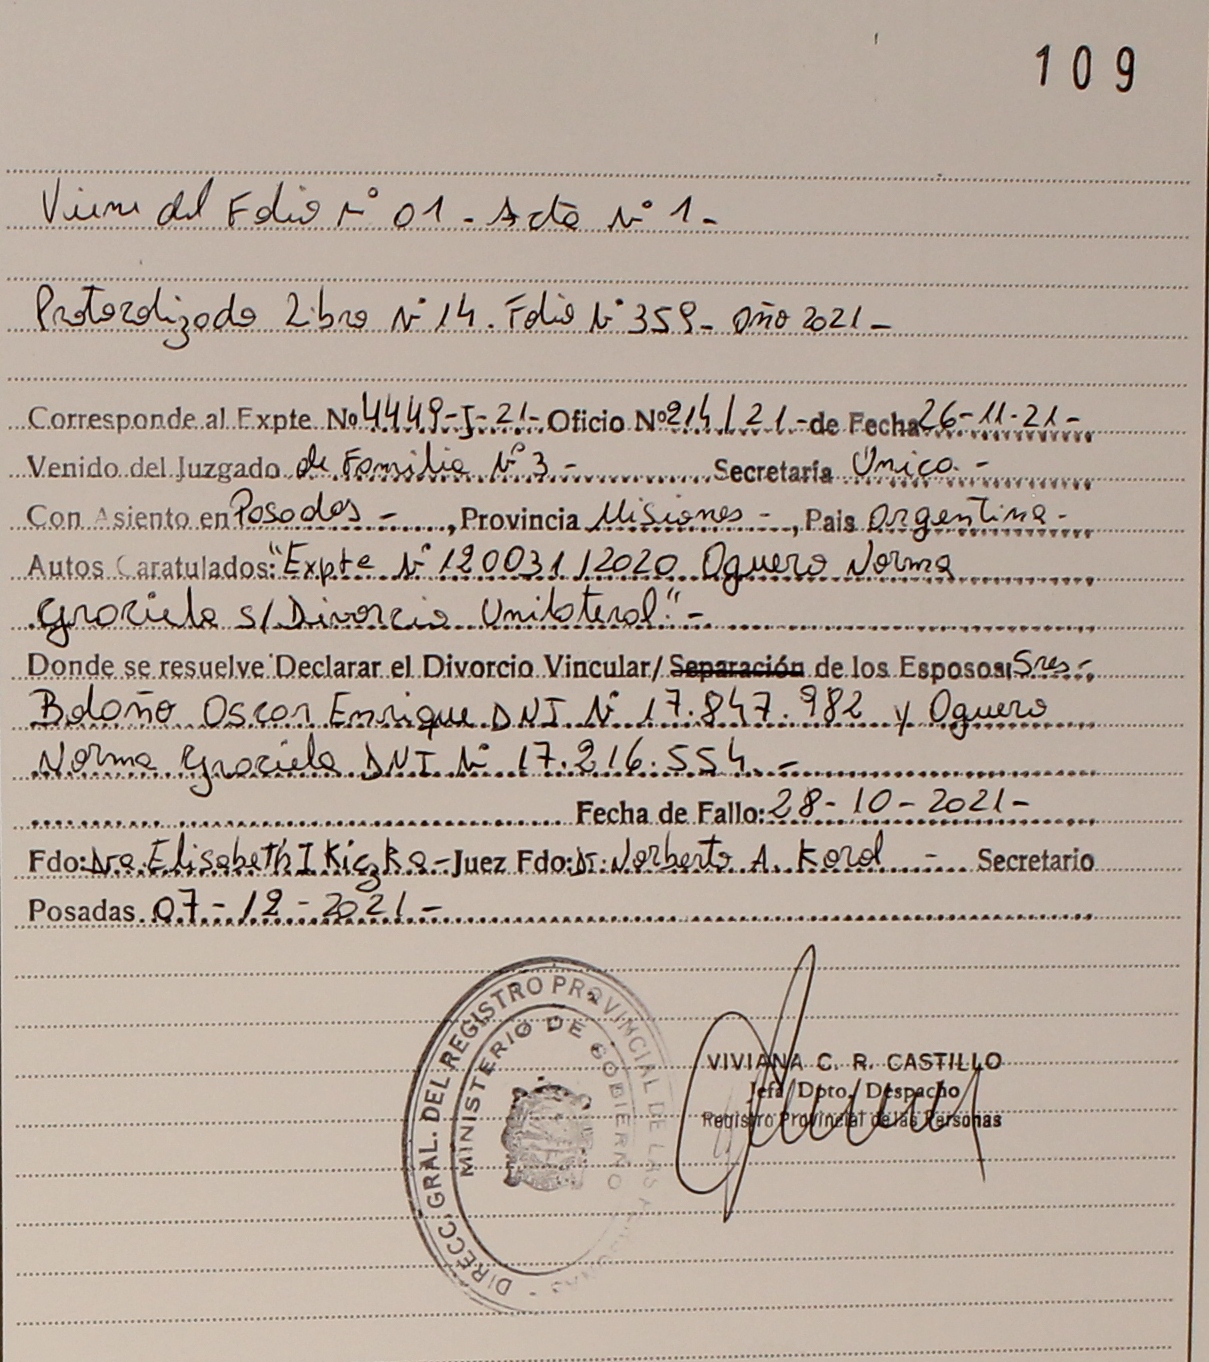 109
Viene del Folio N° 01 - Acta N° 1 -
Protocolizado Libro N° 14. Folio N° 359 - Año 2021 -
Corresponde al Expte Nº 4449-J-21- Oficio Nº 214/21 - de Fecha 26-11-21 -
Venido del Juzgado de Familia N° 3 - Secretaría Única. -
Con Asiento en Posadas - , Provincia Misiones - , Pais Argentina -
Autos Caratulados: "Expte N° 120031/2020 Oguero Norma
Graciela s/ Divorcio Unilateral" -
Donde se resuelve Declarar el Divorcio Vincular/ Separación de los Esposos; Sres -
Bolaño Oscar Enrique DNI N° 17.847.982 y Oguero
Norma Graciela DNI N° 17.216.554. -
Fecha de Fallo: 28-10-2021 -
Fdo: Dra. Elisabeth I Kiczka - Juez Fdo: Dr. Norberto A. Korol - Secretario
Posadas 07-12-2021 -
DIRECC. GRAL. DEL REGISTRO PROVINCIAL DE LAS PERSONAS
MINISTERIO DE GOBIERNO
VIVIANA C. R. CASTILLO
Jefa Dpto. Despacho
Registro Provincial de las Personas